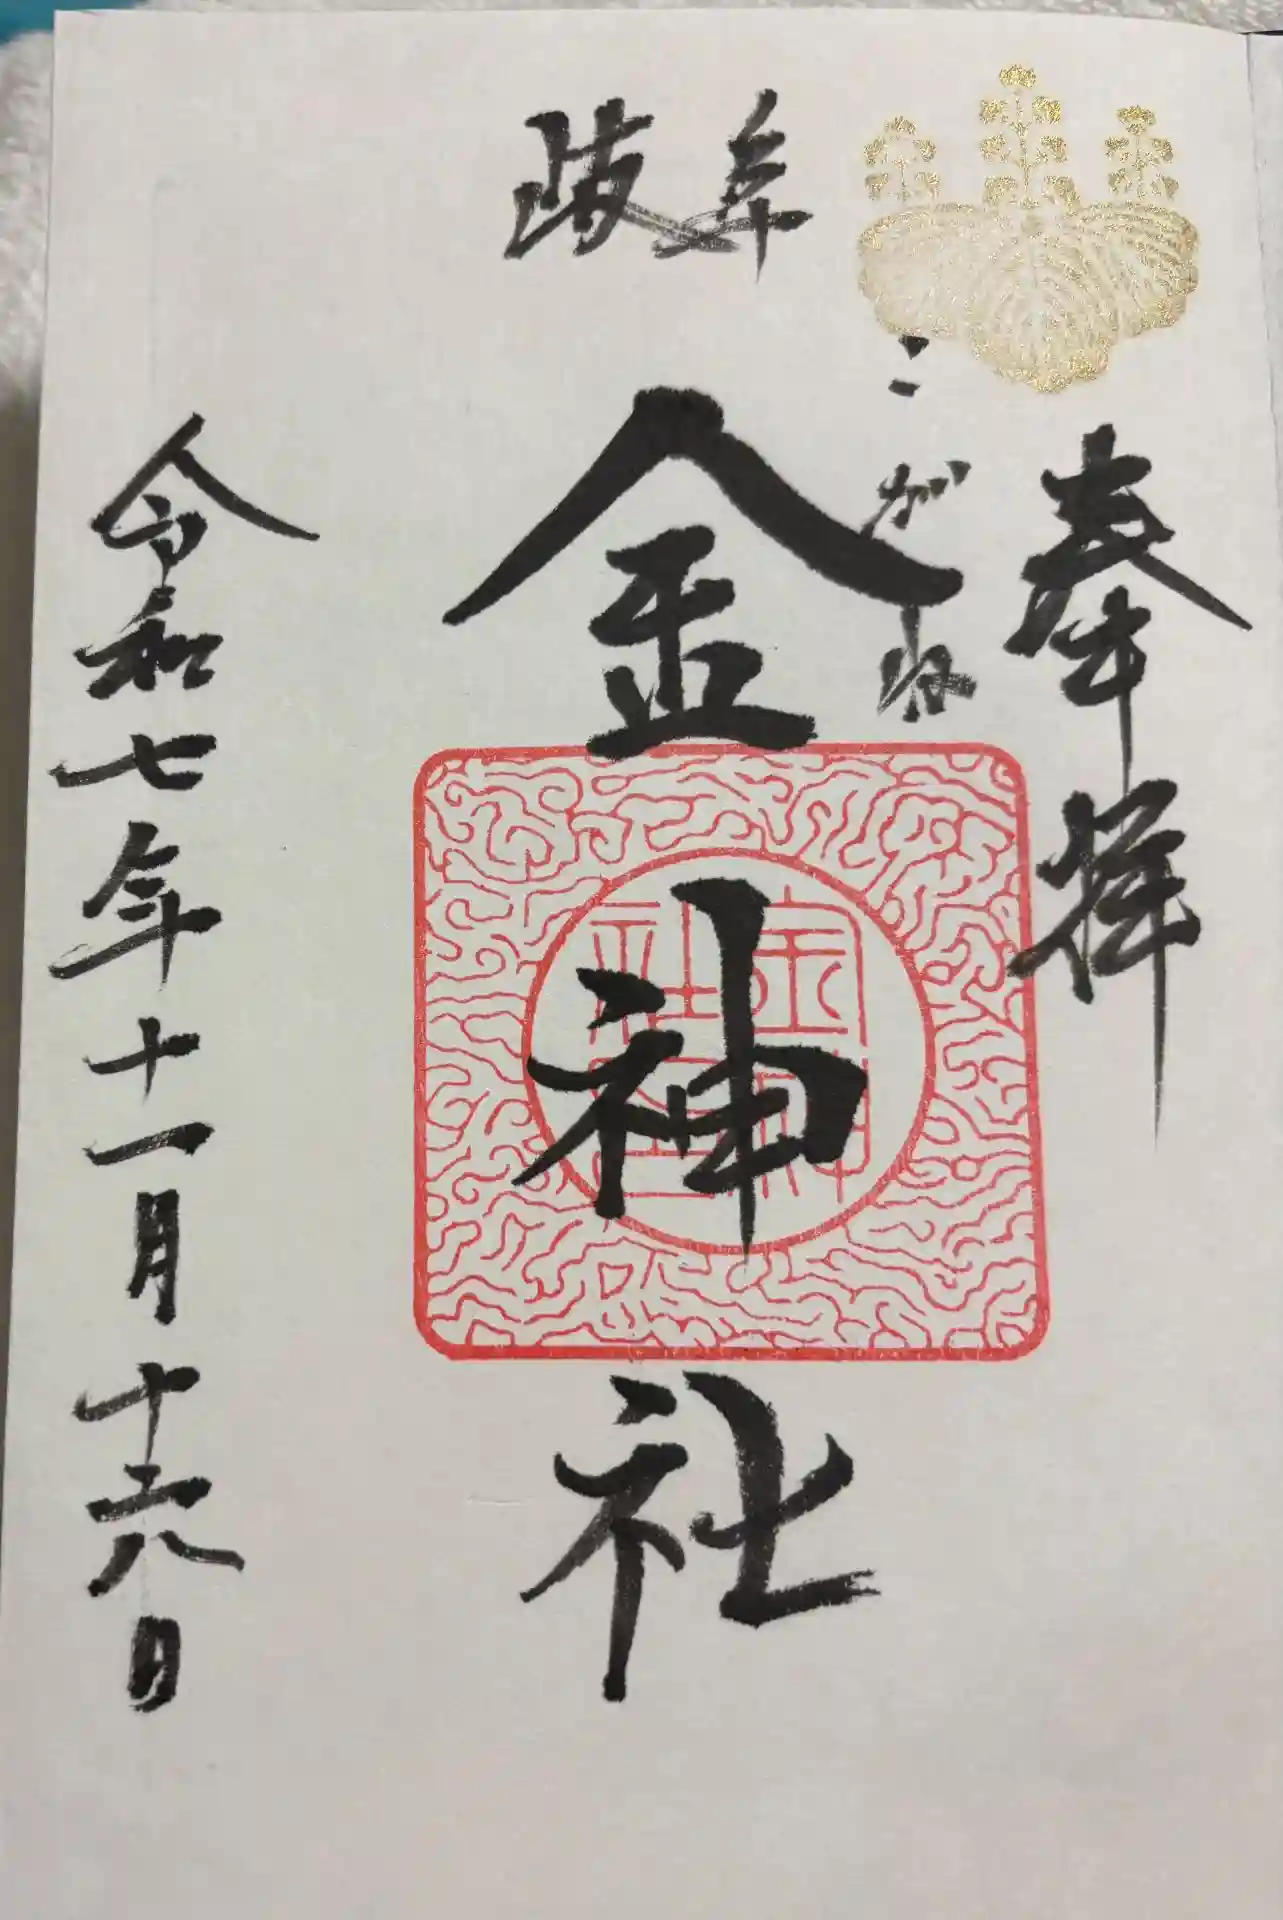 奉拝
こがね
岐阜
金神社
令和七年十一月十六日